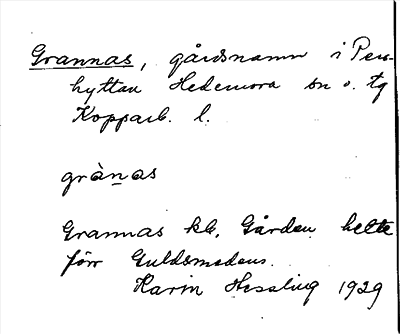 Grannas, gårdsnamn i Pers-
hyttan Hedemora sn o. tg
Kopparb. l.
gràn̲as
Grannas kb. Gården hette
förr Guldsmedens.
Karin Hessling 1929